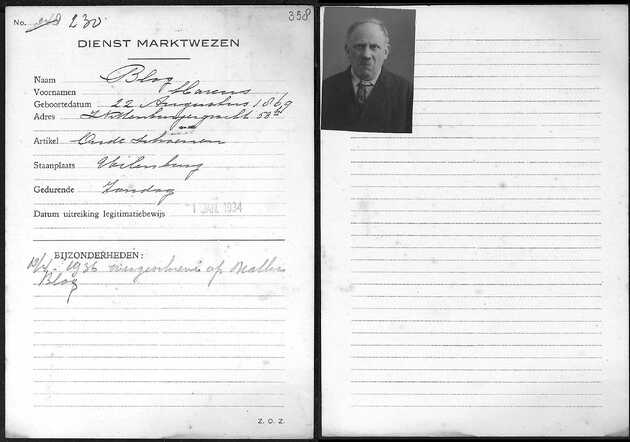 No. 248 230
358
DIENST MARKTWEZEN
Naam Blog
Voornamen Marcus
Geboortedatum 22 Augustus 1869
Adres
Artikel Oude Schoenen
Staanplaats Uilenburg
Gedurende Zondag
Datum uitreiking legitimatiebewijs 1 JAN. 1934
BIJZONDERHEDEN:
1936 overgeschreven op
Blog
Z. O. Z.